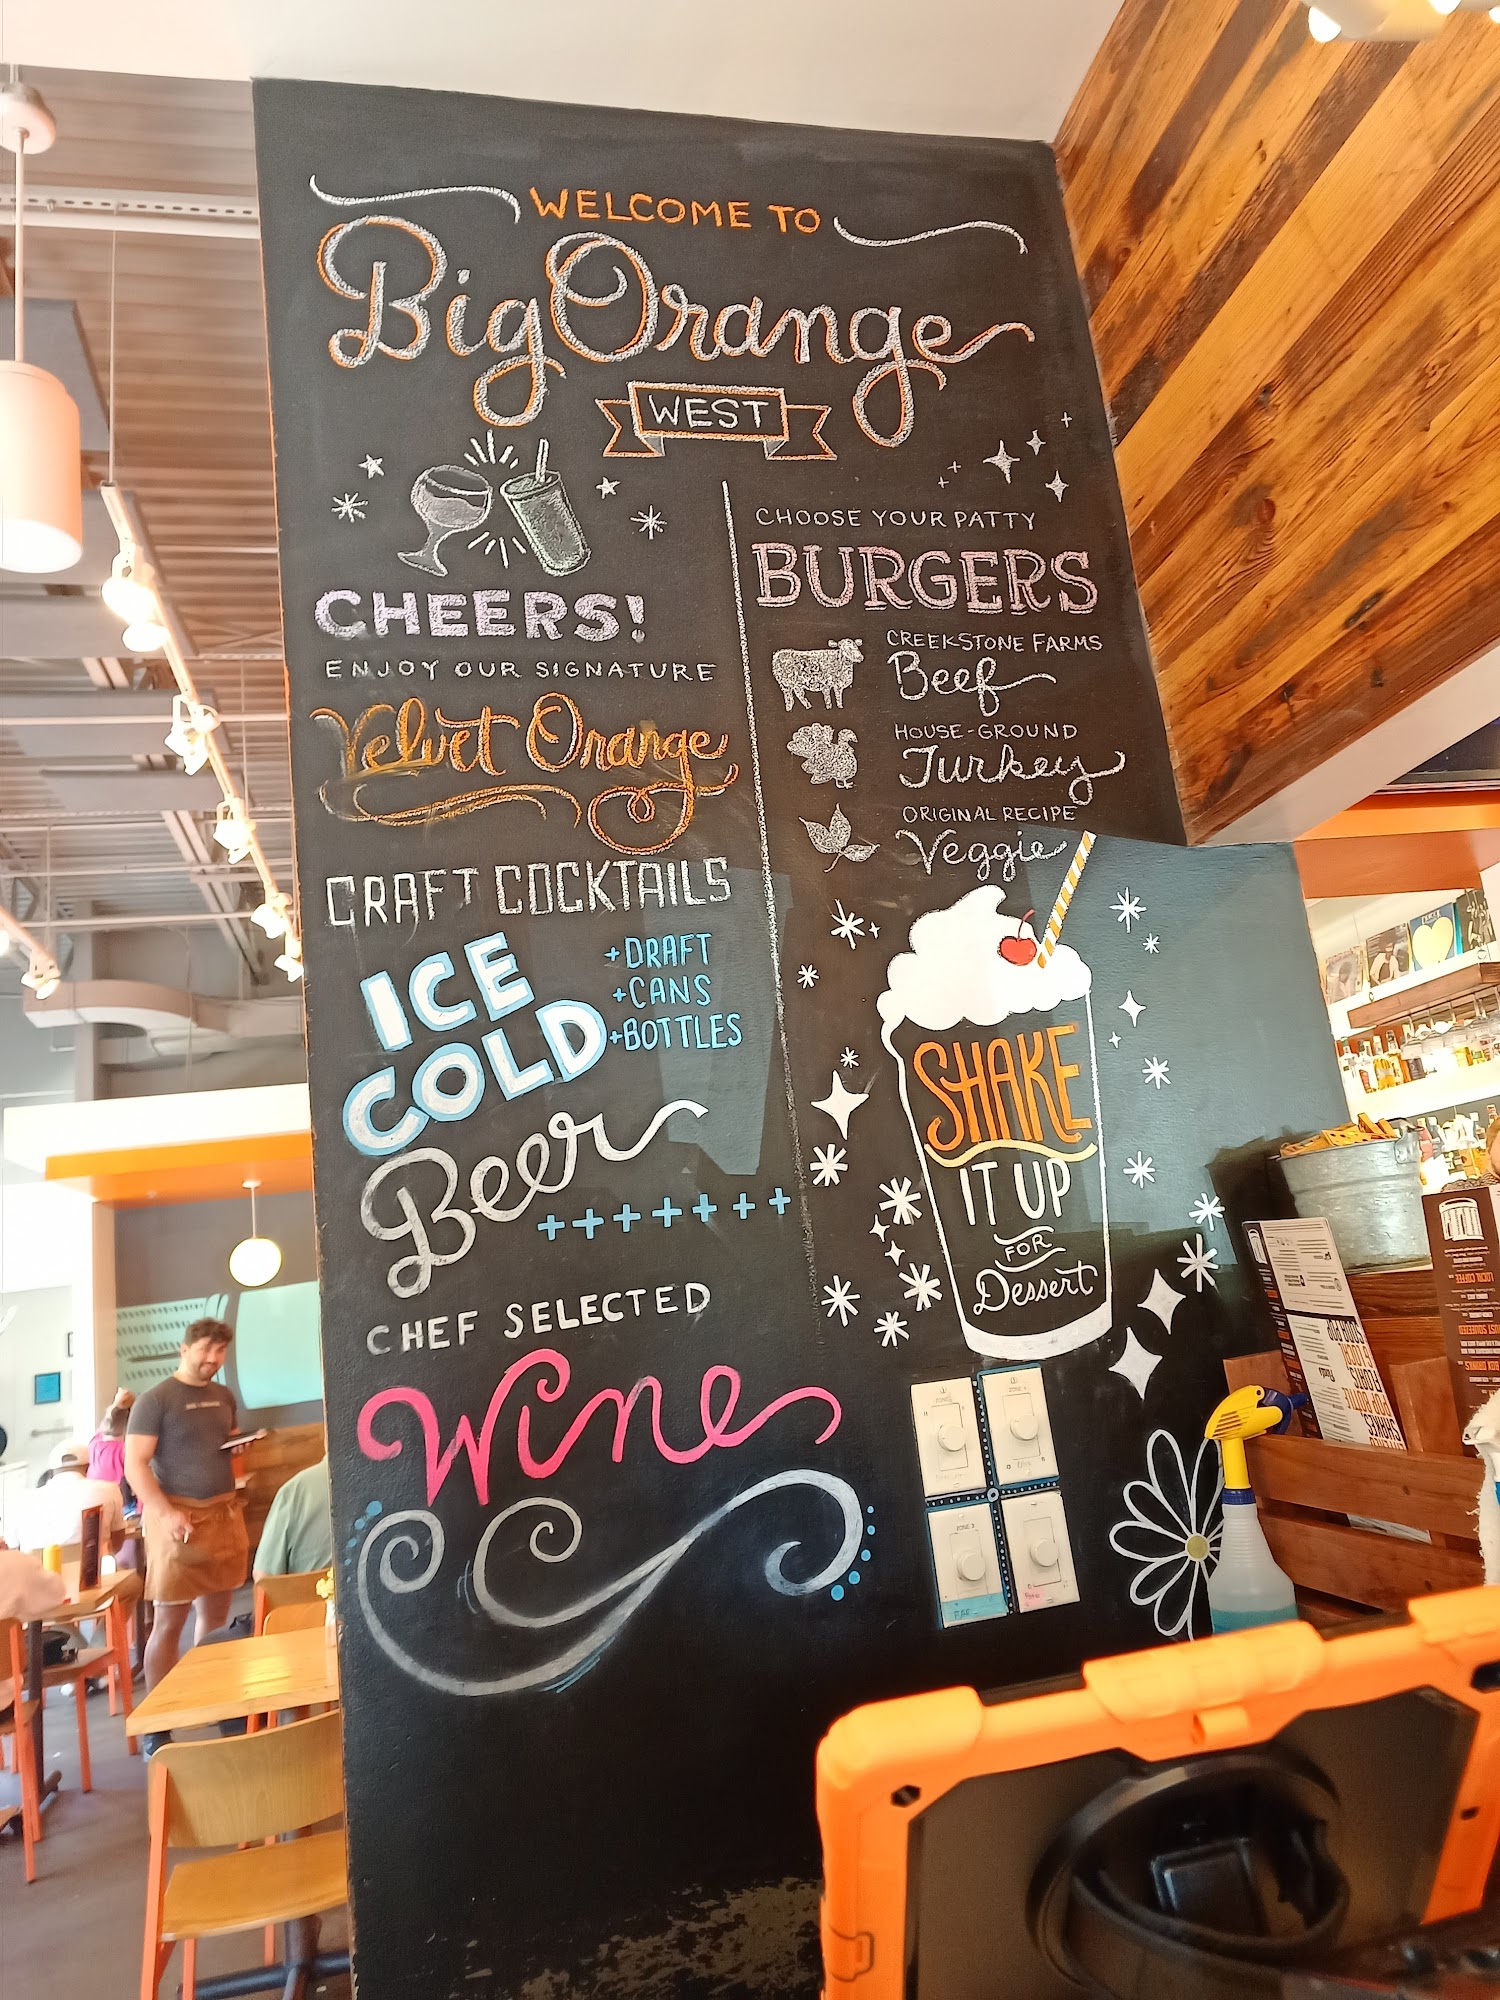 WELCOME TO
Big Orange
WEST
CHEERS!
ENJOY OUR SIGNATURE
Velvet Orange
CRAFT COCKTAILS
ICE
COLD
Beer
+DRAFT
+CANS
+BOTTLES
+++++++
CHEF SELECTED
Wine
CHOOSE YOUR PATTY
BURGERS
CREEKSTONE FARMS
Beef
HOUSE-GROUND
Turkey
ORIGINAL RECIPE
Veggie
SHAKE
IT UP
FOR
Dessert
ZONE 3
LOCAL COFFEE
JUST SQUEEZED
BOX DRINKS